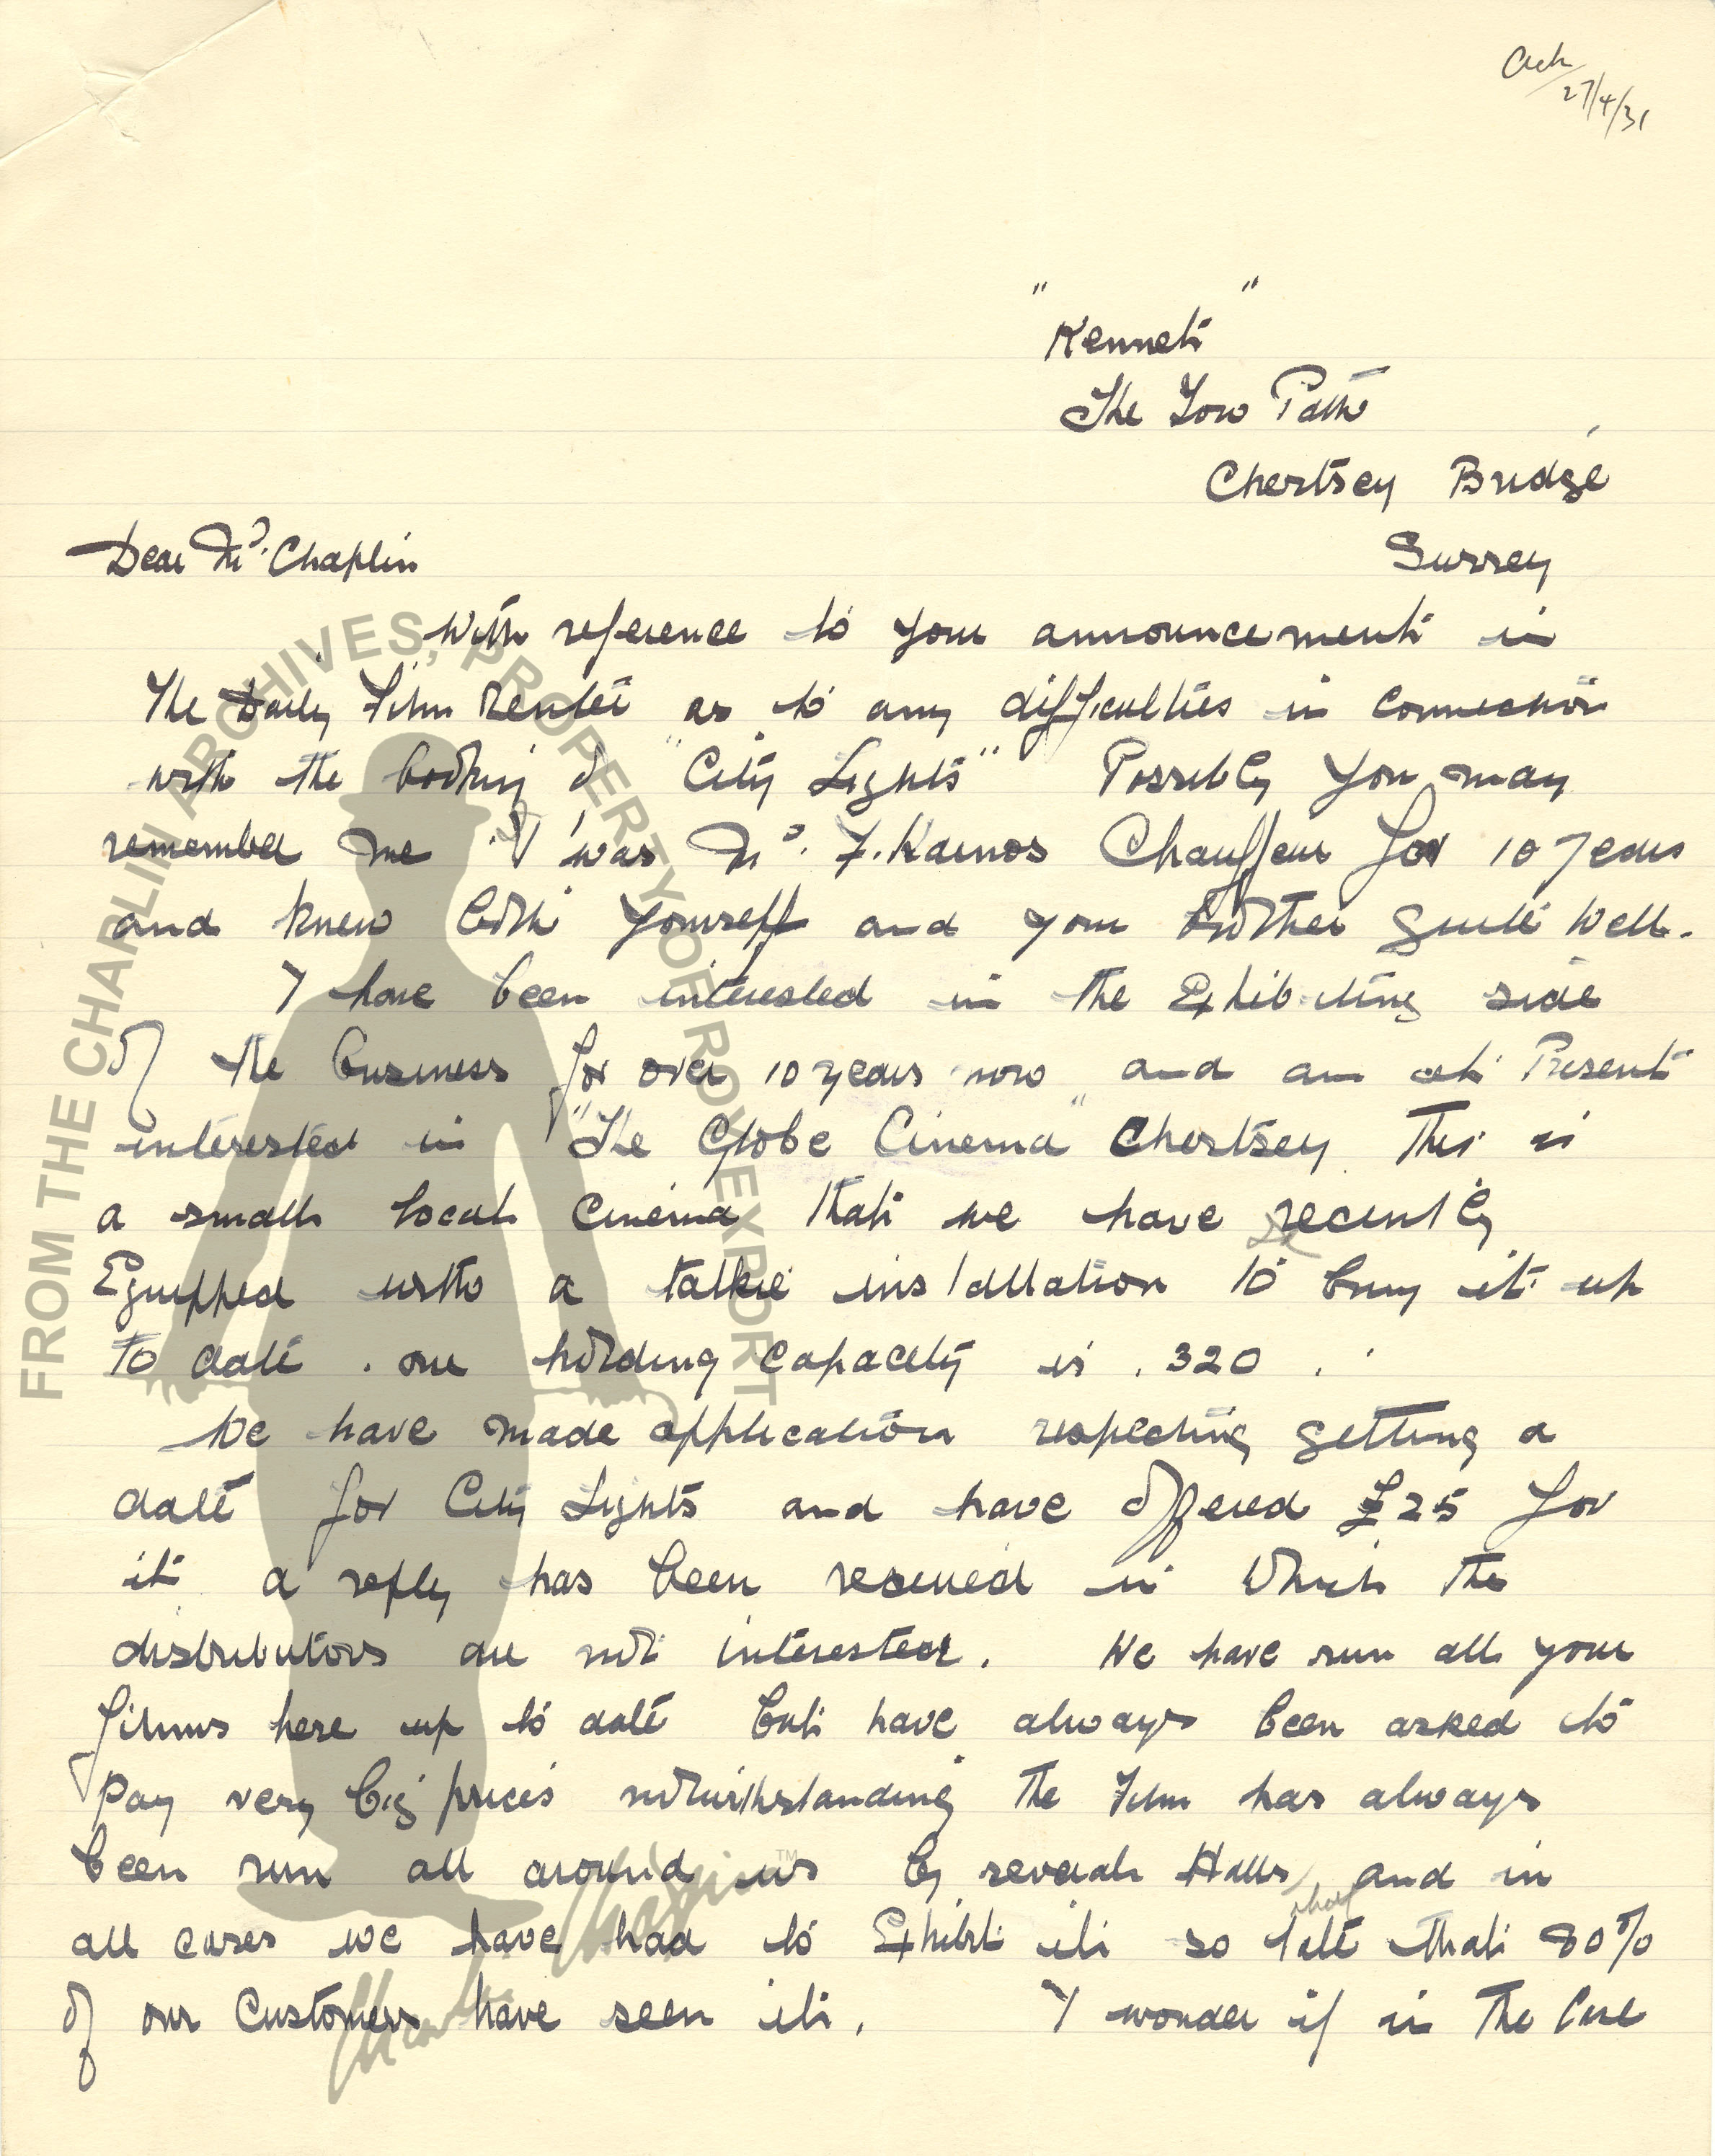 Ack
27/4/31
"Kennet"
The Tow Path
Chertsey Bridge
Surrey
Dear Mr. Chaplin
With reference to your announcement in
The Daily Film Renter as to any difficulties in connection
with the booking of "City Lights" Possibly you may
remember me I was Mr. F. Karnos Chauffeur for 10 years
and knew both yourself and your brother quite well.
I have been interested in the Exhibiting side
of the business for over 10 years now and am at Present
interested in "The Globe Cinema" Chertsey. This is
a small local cinema that we have recently
Equipped with a talkie installation to bring it up
to date . our holding capacity is . 320 .
We have made application respecting getting a
date for City Lights and have offered £25 for
it a reply has been received in which the
distributors are not interested. We have run all your
films here up to date but have always been asked to
Pay very big prices notwithstanding the Film has always
been run all around us by several Halls, and in
all cases we have had to Exhibit it so late that 80%
of our Customers have seen it. I wonder if in The Case
FROM THE CHAPLIN ARCHIVES, PROPERTY OF ROY EXPORT
Charlie Chaplin™